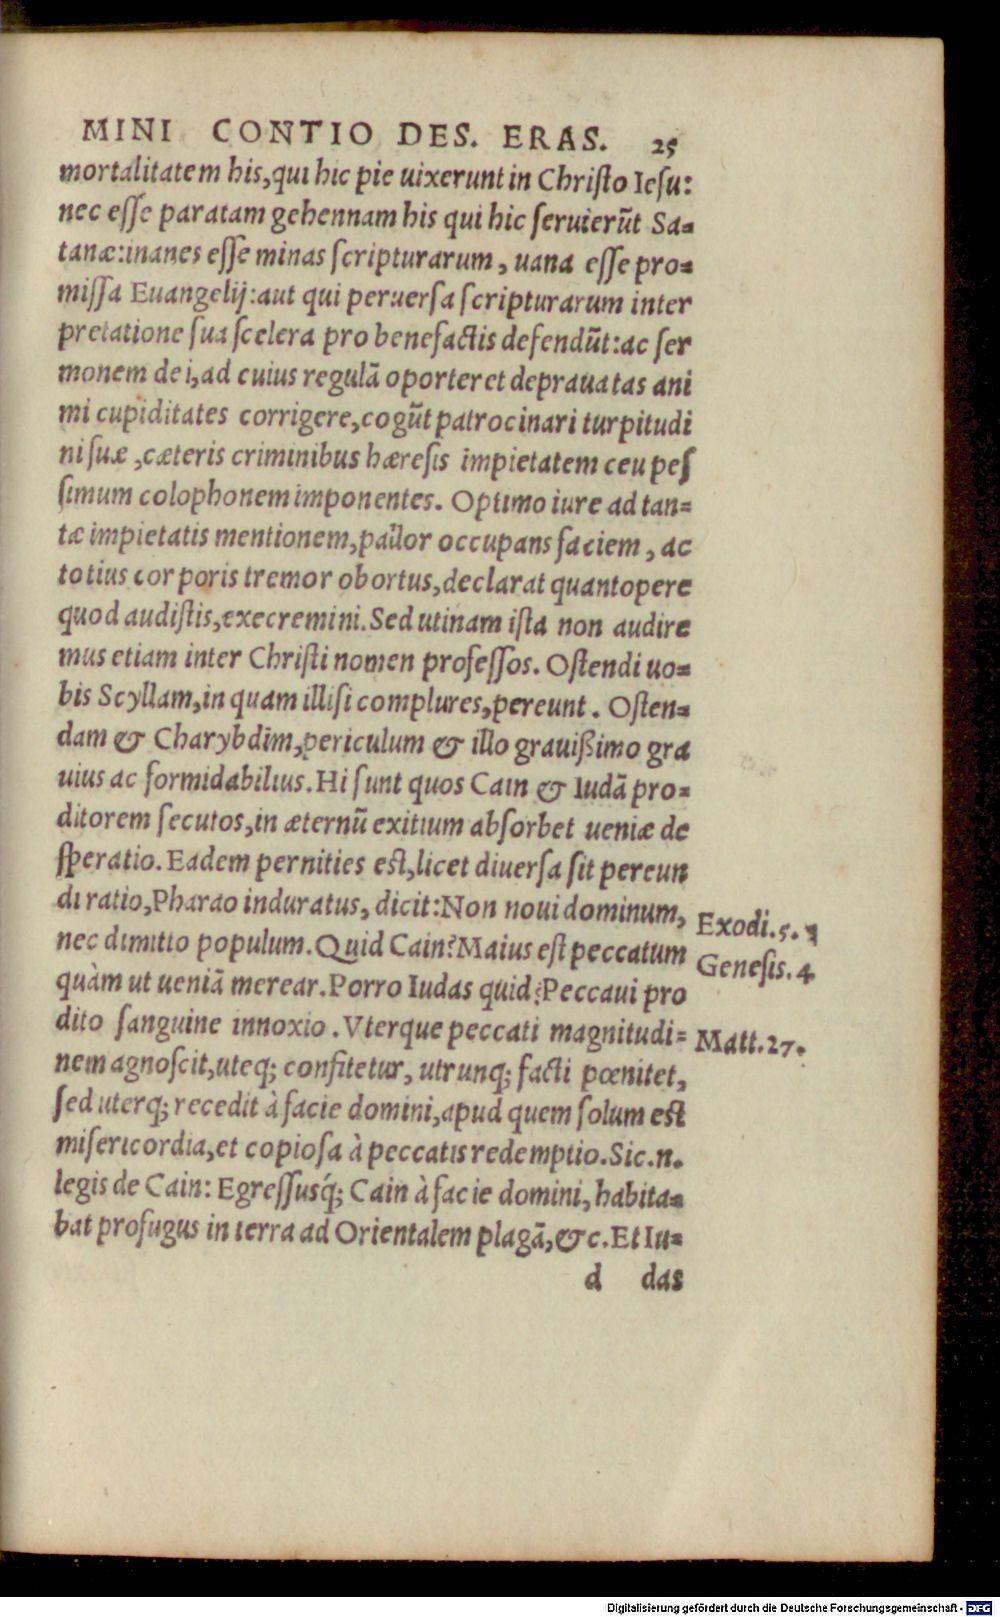 MINI CONTIO DES. ERAS. 25
mortalitatem his, qui hic pie uixerunt in Christo Iesu:
nec esse paratam gehennam his qui hic seruierūt Sa=
tanæ: inanes esse minas scripturarum, uana esse pro=
missa Euangelij: aut qui peruersa scripturarum inter
pretatione sua scelera pro benefactis defendūt: ac ser
monem dei, ad cuius regulā oporteret deprauatas ani
mi cupiditates corrigere, cogūt patrocinari turpitudi
ni suæ, cæteris criminibus hæresis impietatem ceu pes
simum colophonem imponentes. Optimo iure ad tan=
tæ impietatis mentionem, pallor occupans faciem, ac
totius corporis tremor obortus, declarat quantopere
quod audistis, execremini. Sed utinam ista non audire
mus etiam inter Christi nomen professos. Ostendi uo=
bis Scyllam, in quam illisi complures, pereunt. Osten=
dam & Charybdim, periculum & illo grauißimo gra
uius ac formidabilius. Hi sunt quos Cain & Iudā pro=
ditorem secutos, in æternū exitium absorbet ueniæ de
speratio. Eadem pernities est, licet diuersa sit pereun
di ratio, Pharao induratus, dicit: Non noui dominum,
Exodi. 5.
nec dimitto populum. Quid Cain? Maius est peccatum
Genesis. 4
quàm ut ueniā merear. Porro Iudas quid? Peccaui pro
dito sanguine innoxio. Vterque peccati magnitudi=
Matt. 27.
nem agnoscit, uterq; confitetur, utrunq; facti pœnitet,
sed uterq; recedit à facie domini, apud quem solum est
misericordia, et copiosa à peccatis redemptio. Sic.n.
legis de Cain: Egressusq́; Cain à facie domini, habita=
bat profugus in terra ad Orientalem plagā, &c. Et Iu=
d das
Digitalisierung gefördert durch die Deutsche Forschungsgemeinschaft - DFG